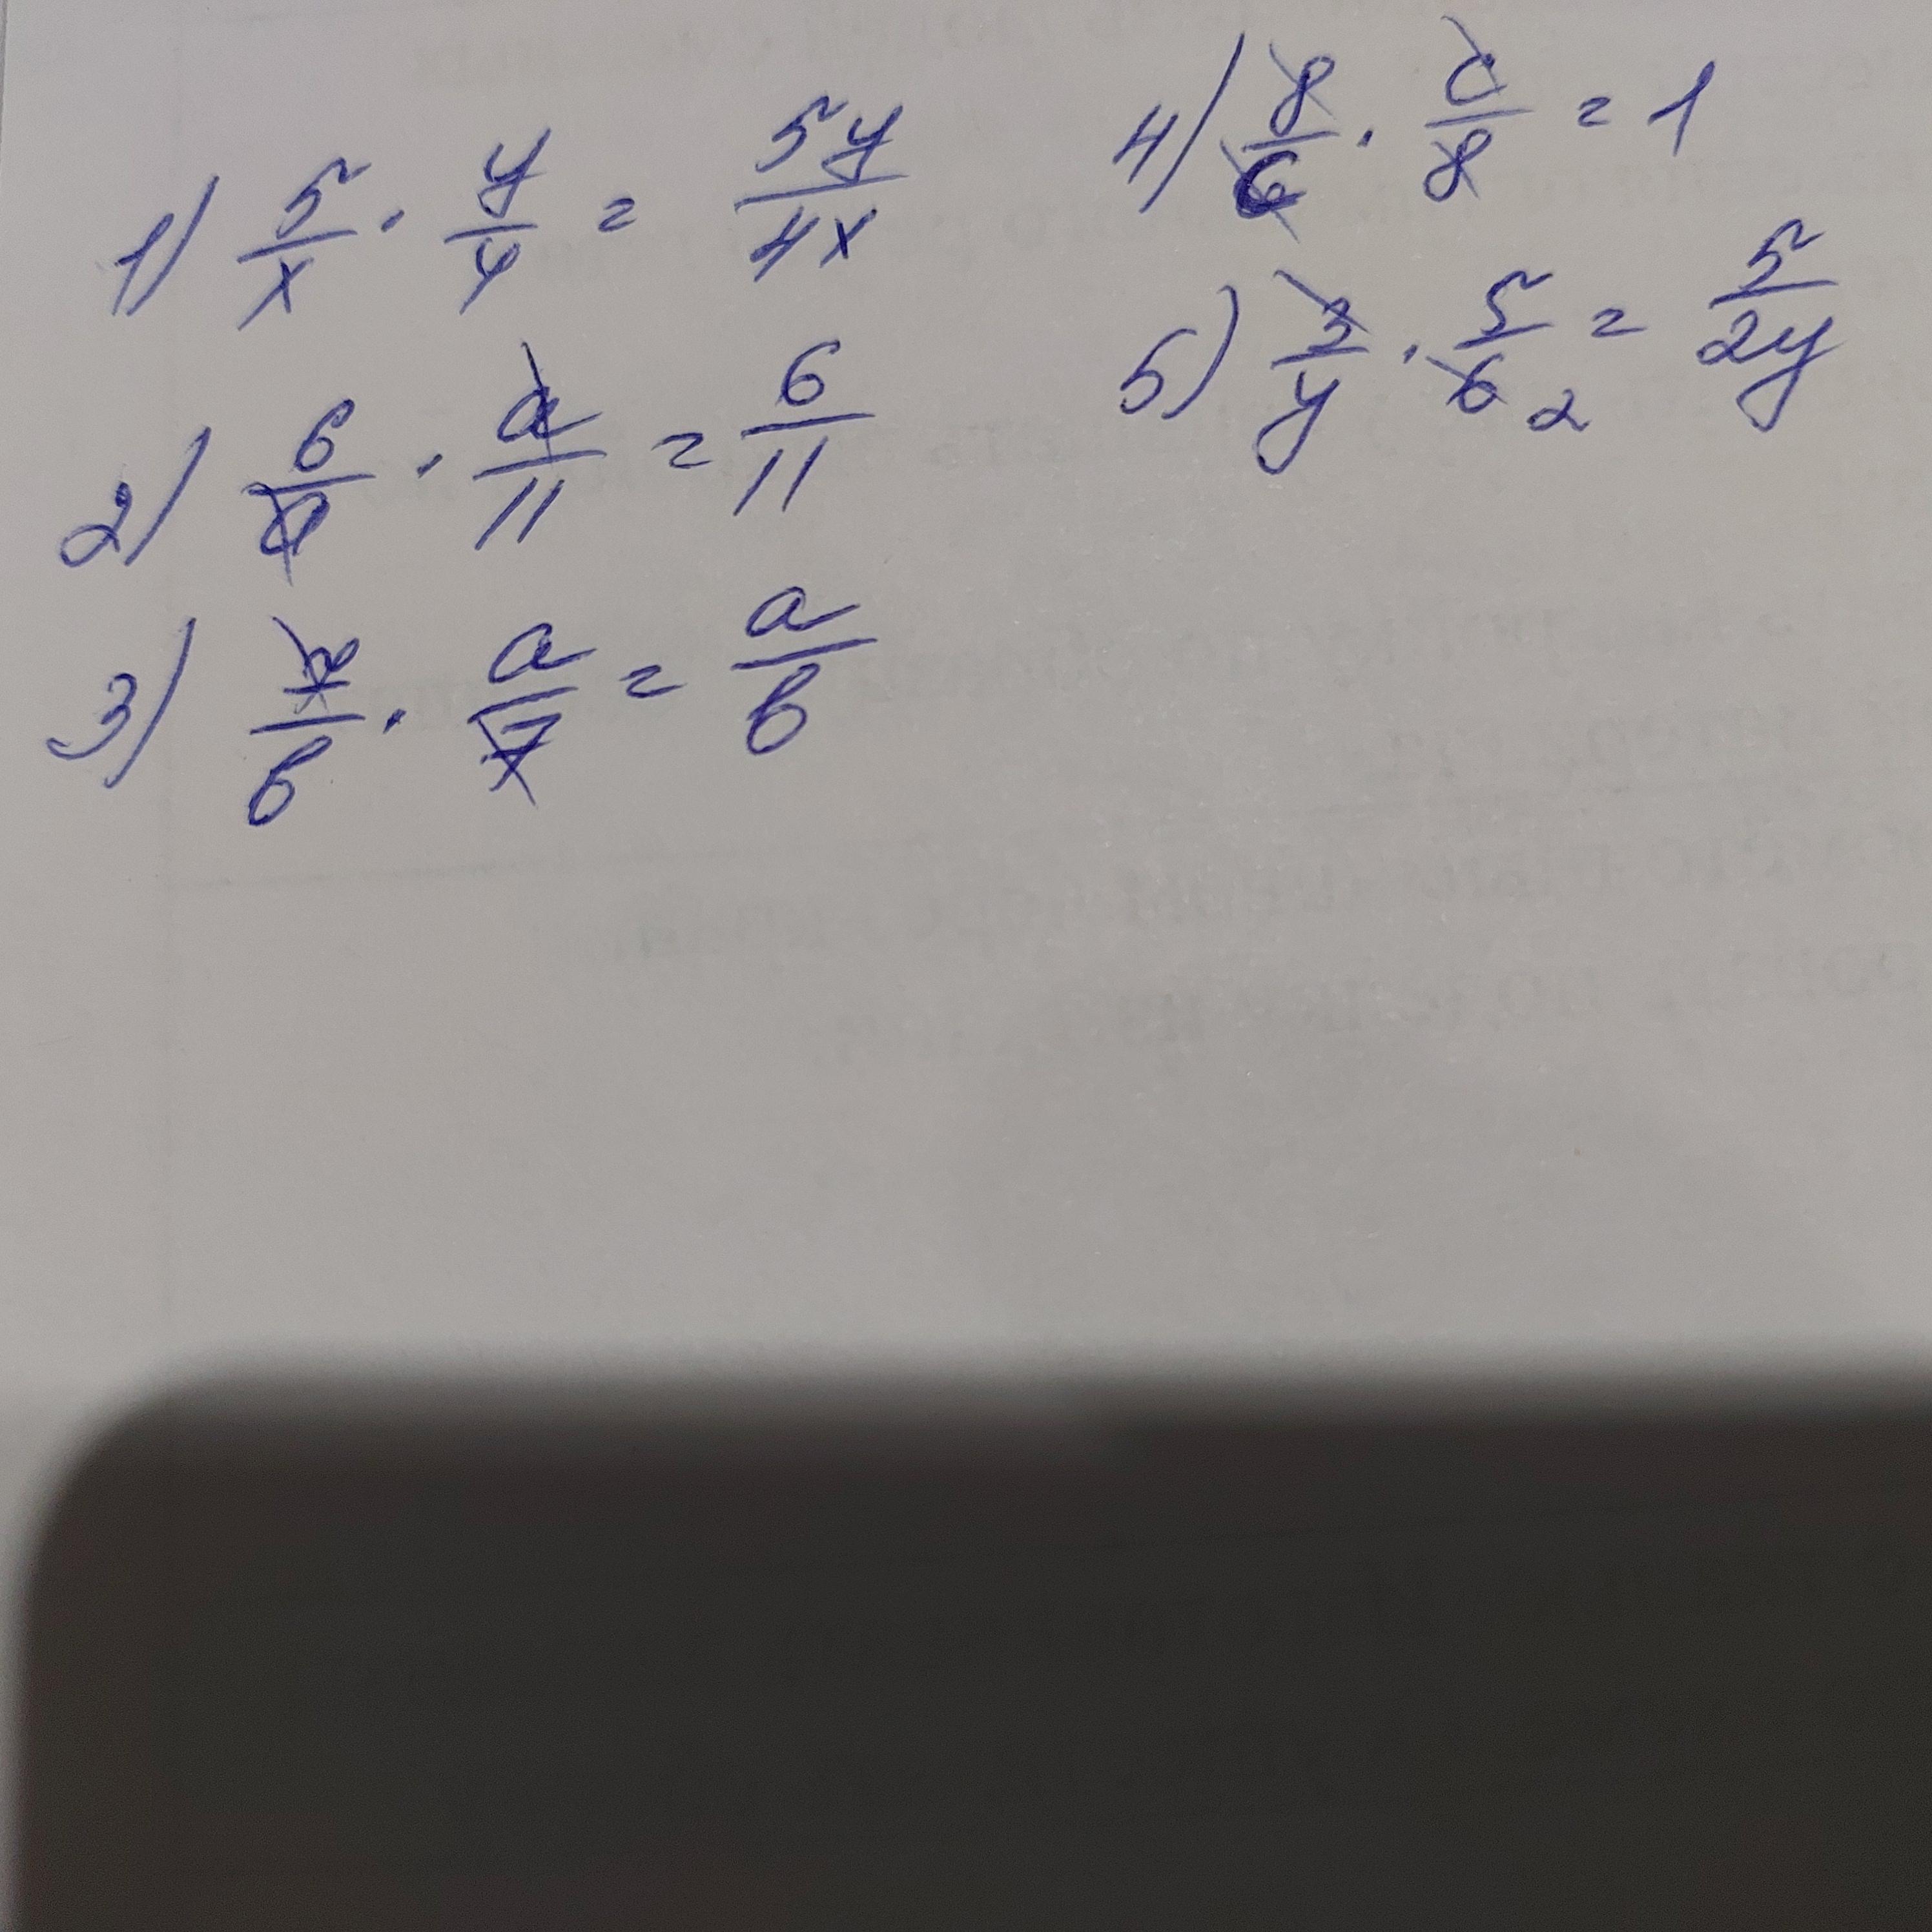 1) 5/x · y/4 = 5y/4x
2) 6/a · a/11 = 6/11
3) 7/в · a/7 = a/в
4) 8/c · c/8 = 1
5) 3/y · 5/6 2 = 5/2y